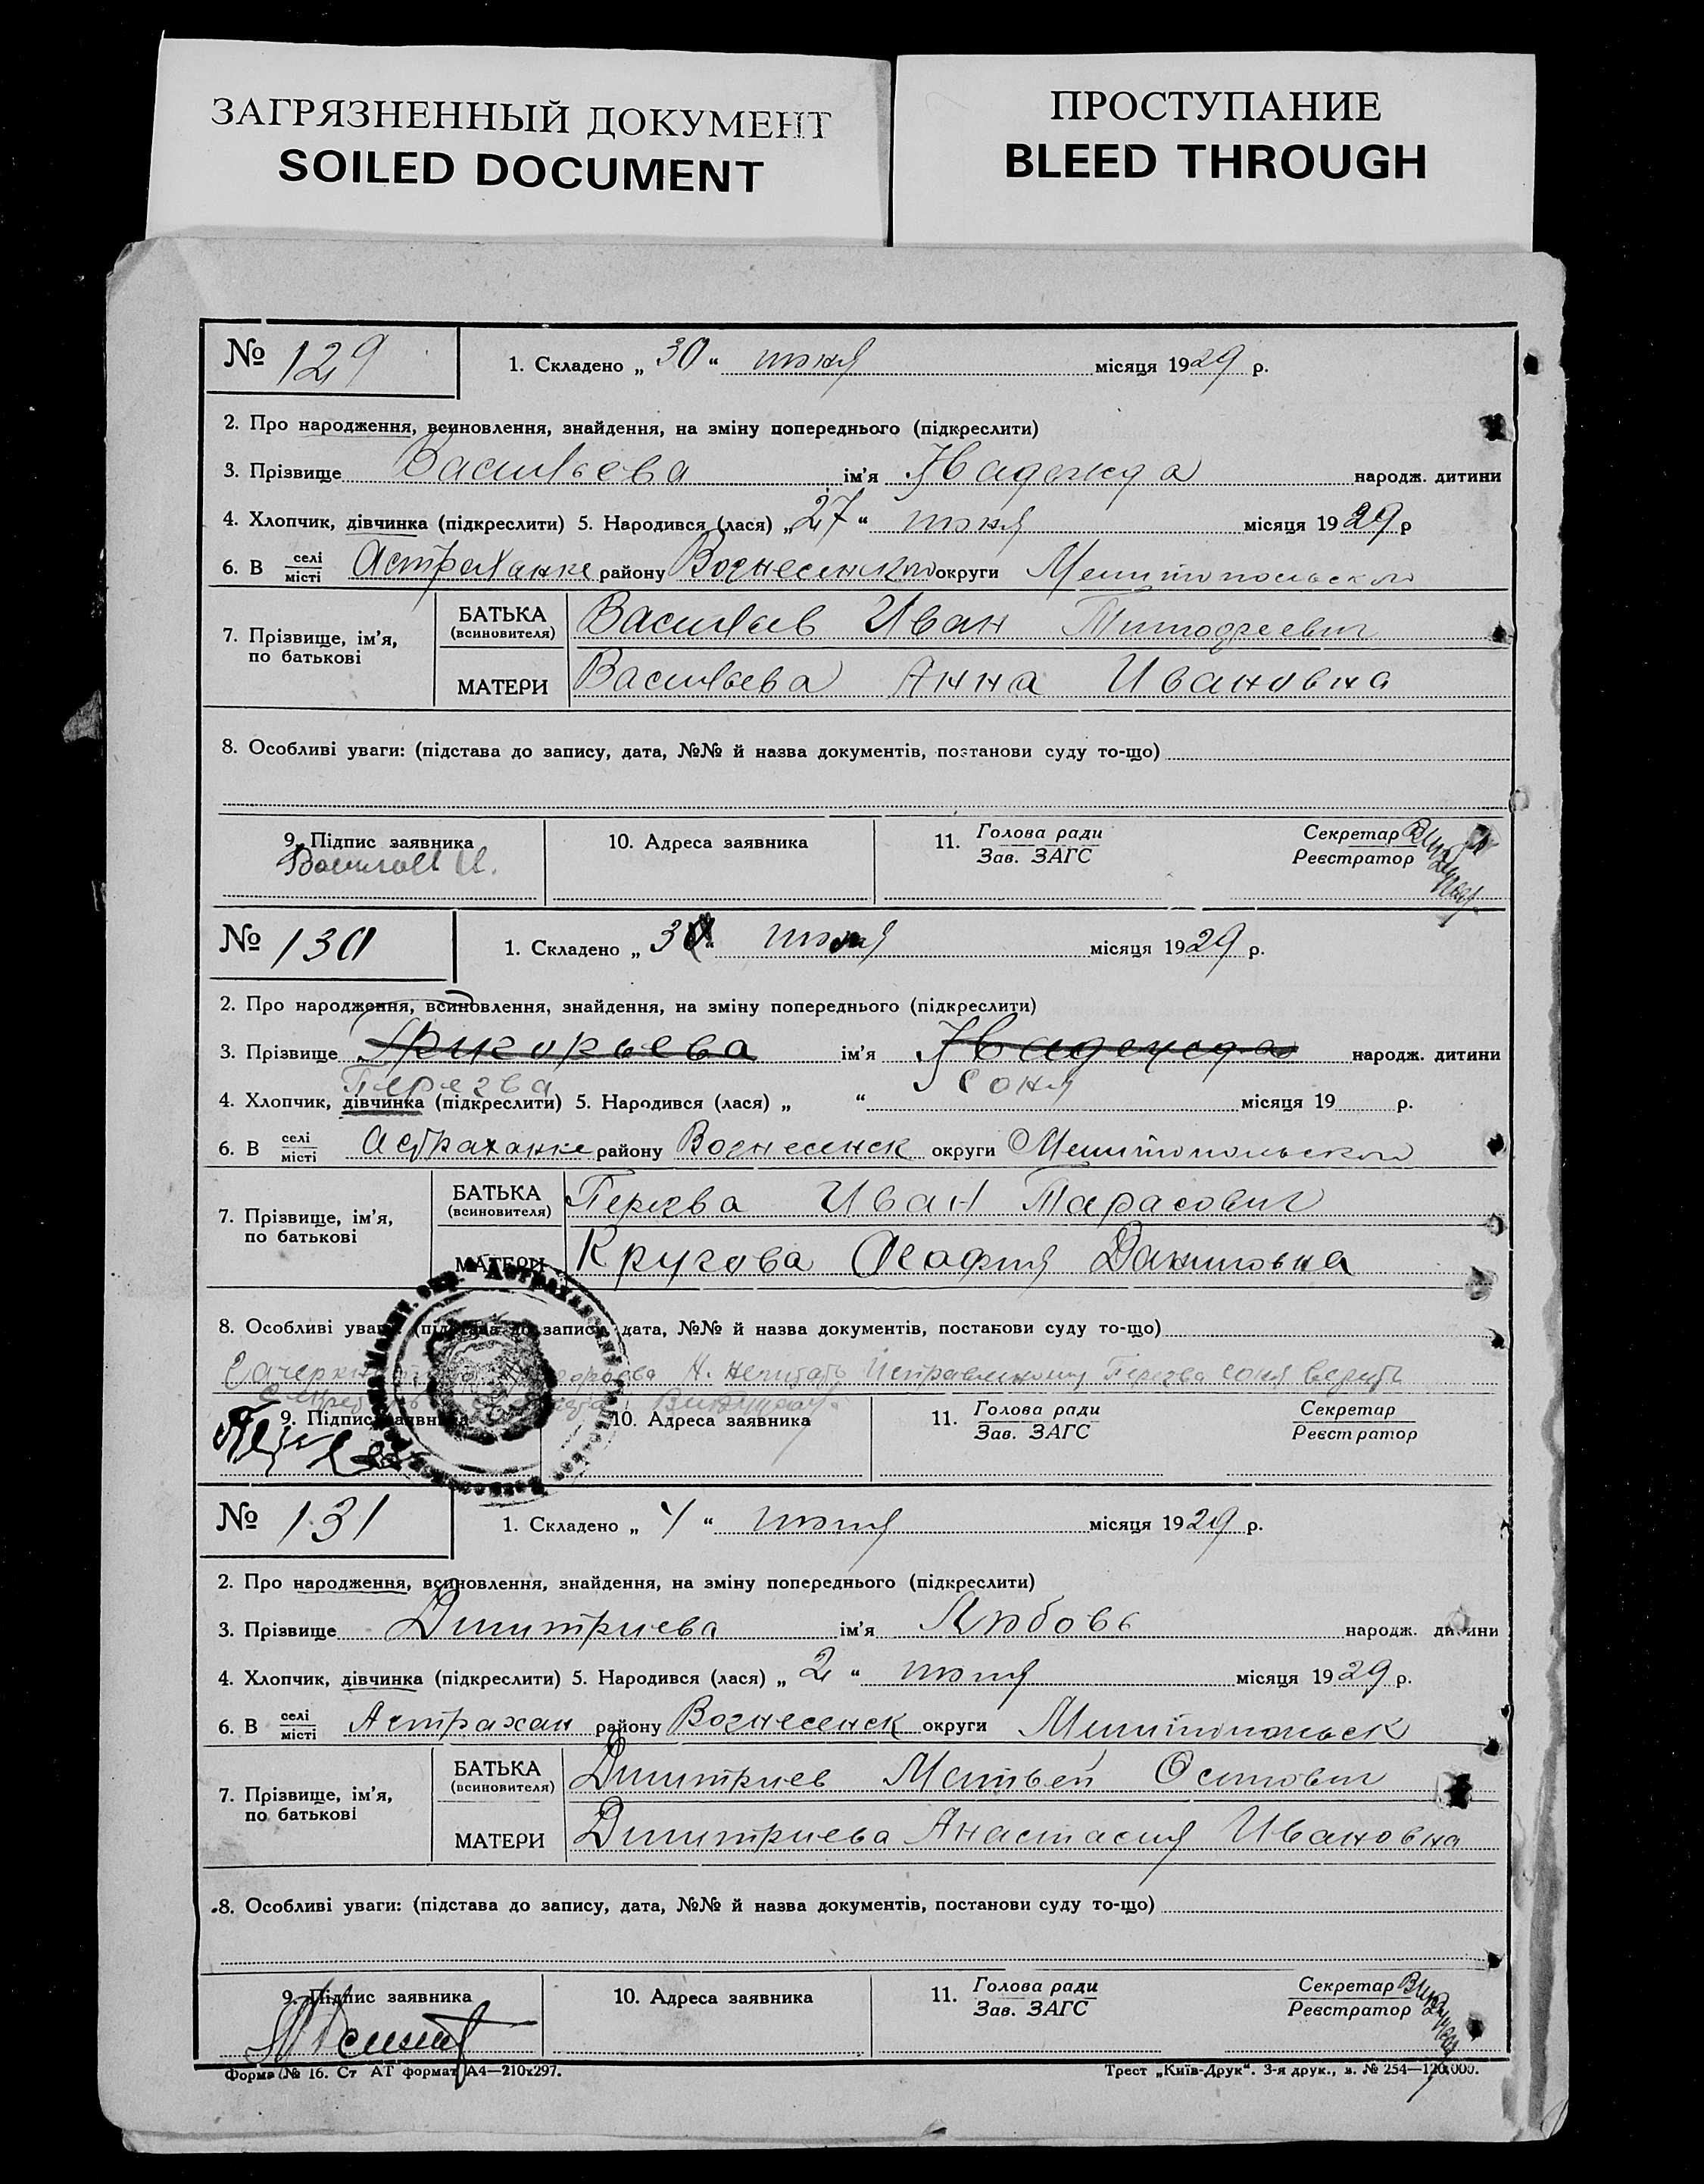 ЗАГРЯЗНЕННЫЙ ДОКУМЕНТ
SOILED DOCUMENT
ПРОСТУПАНИЕ
BLEED THROUGH
№ 129
1. Складено „ 30 “ июня місяця 1929 р.
2. Про народження, всиновлення, знайдення, на зміну попереднього (підкреслити)
3. Прізвище Васильева ім'я Надежда народж. дитини
4. Хлопчик, дівчинка (підкреслити) 5. Народився (лася) „ 27 “ июня місяця 1929 р
6. В селі місті Астраханке району Вознесенского округи Мелитопольского
7. Прізвище, ім'я, по батькові
БАТЬКА (всиновителя) Васильев Иван Тимофеевич
МАТЕРИ Васильева Анна Ивановна
8. Особливі уваги: (підстава до запису, дата, №№ й назва документів, постанови суду то-що)
9. Підпис заявника 10. Адреса заявника 11. Голова ради Зав. ЗАГС Секретар Реєстратор
№ 130
1. Складено „ 30 “ июня місяця 1929 р.
2. Про народження, всиновлення, знайдення, на зміну попереднього (підкреслити)
3. Прізвище Григорьева ім'я Надежда народж. дитини
Перезва Соня
4. Хлопчик, дівчинка (підкреслити) 5. Народився (лася) „ “ місяця 19 р.
6. В селі місті Астраханке району Вознесенск округи Мелитопольского
7. Прізвище, ім'я, по батькові
БАТЬКА (всиновителя) Перезва Иван Тарасович
МАТЕРИ Кругова Агафия Даниловна
8. Особливі уваги: (підстава до запису, дата, №№ й назва документів, постанови суду то-що)
Н. нечитать Исправленному Перезва Соня верить
9. Підпис заявника 10. Адреса заявника 11. Голова ради Зав. ЗАГС Секретар Реєстратор
№ 131
1. Складено „ 4 “ июля місяця 1929 р.
2. Про народження, всиновлення, знайдення, на зміну попереднього (підкреслити)
3. Прізвище Димитриева ім'я Любовь народж. дитини
4. Хлопчик, дівчинка (підкреслити) 5. Народився (лася) „ 2 “ июля місяця 1929 р.
6. В селі місті Астрахан району Вознесенск округи Мелитопольск
7. Прізвище, ім'я, по батькові
БАТЬКА (всиновителя) Димитриев Матвей Осипович
МАТЕРИ Димитриева Анастасия Ивановна
8. Особливі уваги: (підстава до запису, дата, №№ й назва документів, постанови суду то-що)
9. Підпис заявника 10. Адреса заявника 11. Голова ради Зав. ЗАГС Секретар Реєстратор
Форма № 16. Ст АТ формат А4—210х297.
Трест „Київ-Друк“. 3-я друк., з. № 254—120.000.